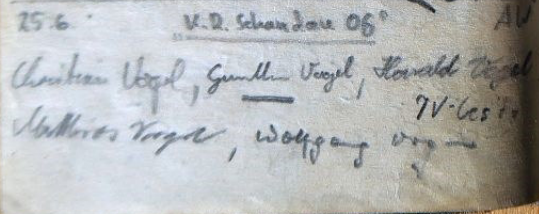 25.6. V.D. Schandau 06° AW
Christian Vogel, Gunther Vogel, Harald Vogel
Matthias Vogel, Wolfgang